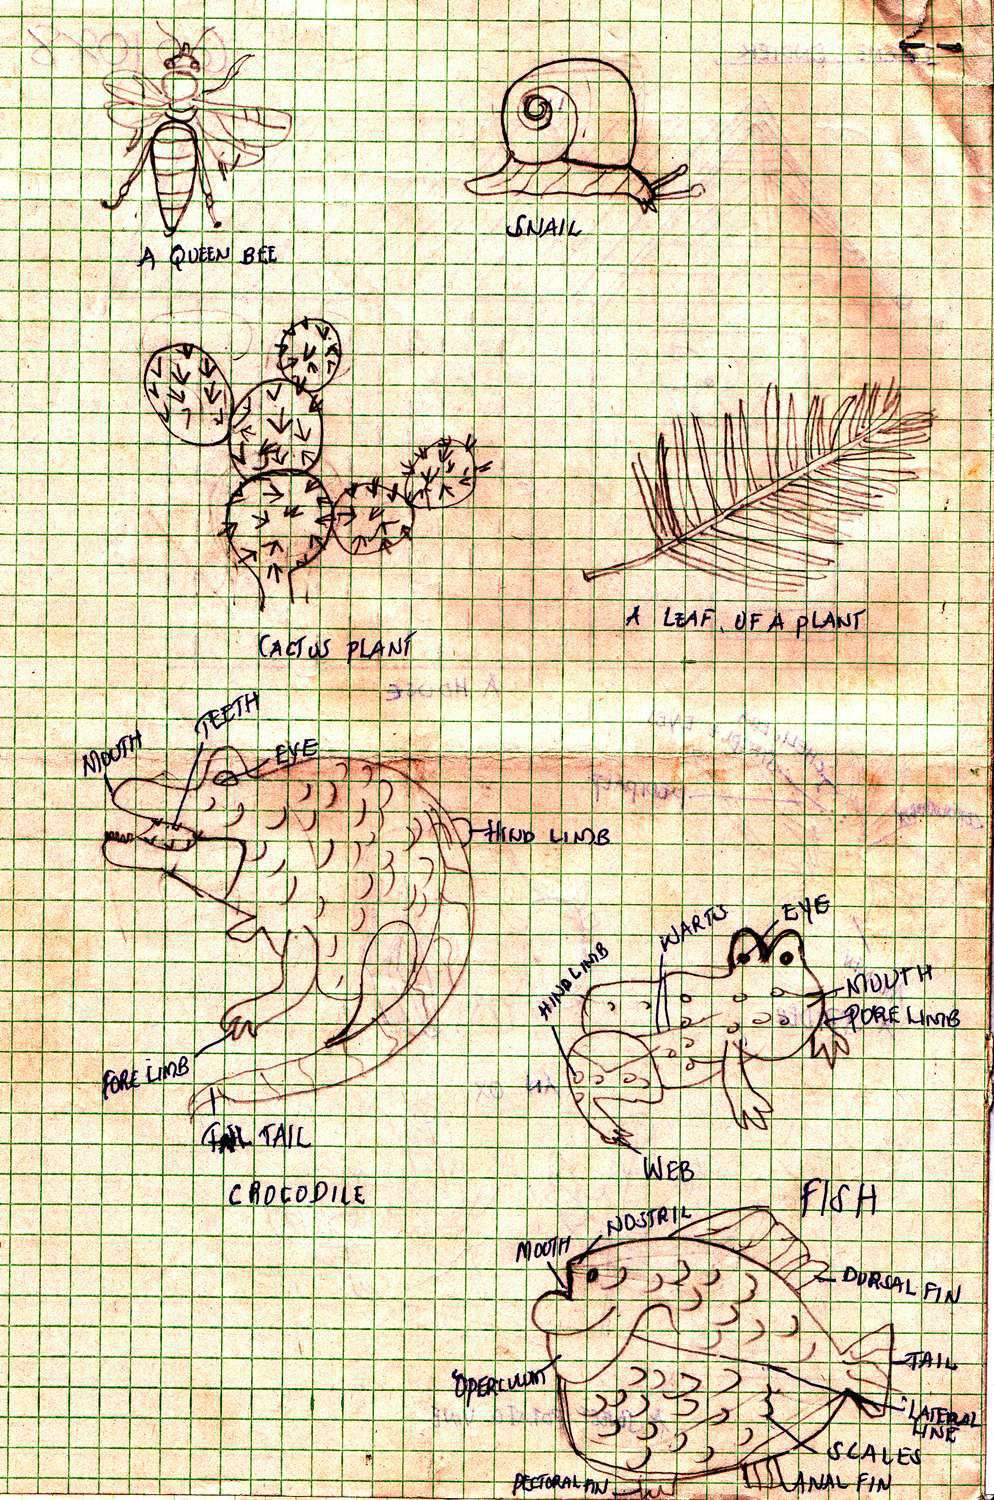 A QUEEN BEE
SNAIL
CACTUS PLANT
A LEAF OF A PLANT
A HOUSE
TEETH
MOUTH
EYE
HIND LIMB
FORE LIMB
TAIL
CROCODILE
WARTS
EYE
HIND LIMB
MOUTH
FORE LIMB
AN OX
WEB
FISH
NOSTRIL
MOUTH
DORSAL FIN
TAIL
OPERCULUM
LATERAL
LINE
SCALES
ANAL FIN
PECTORAL FIN